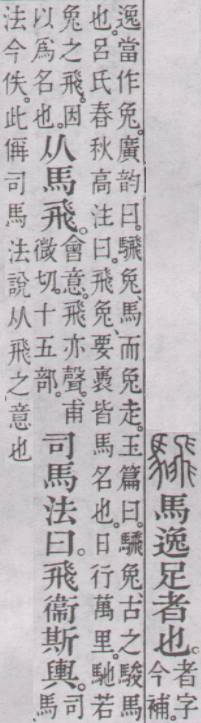 騛 馬逸足者也。者字今補。
逸當作兔。廣韵曰。騛兔、馬而兔走。玉篇曰。騛兔、古之駿馬
也。呂氏春秋高注曰。飛兔、要褭皆馬名也。日行萬里。馳若
兔之飛。因
以爲名也。
从馬飛。會意。飛亦聲。甫微切。十五部。司馬法曰。飛衞斯輿。司馬
法今佚。此偁司馬法說从飛之意也